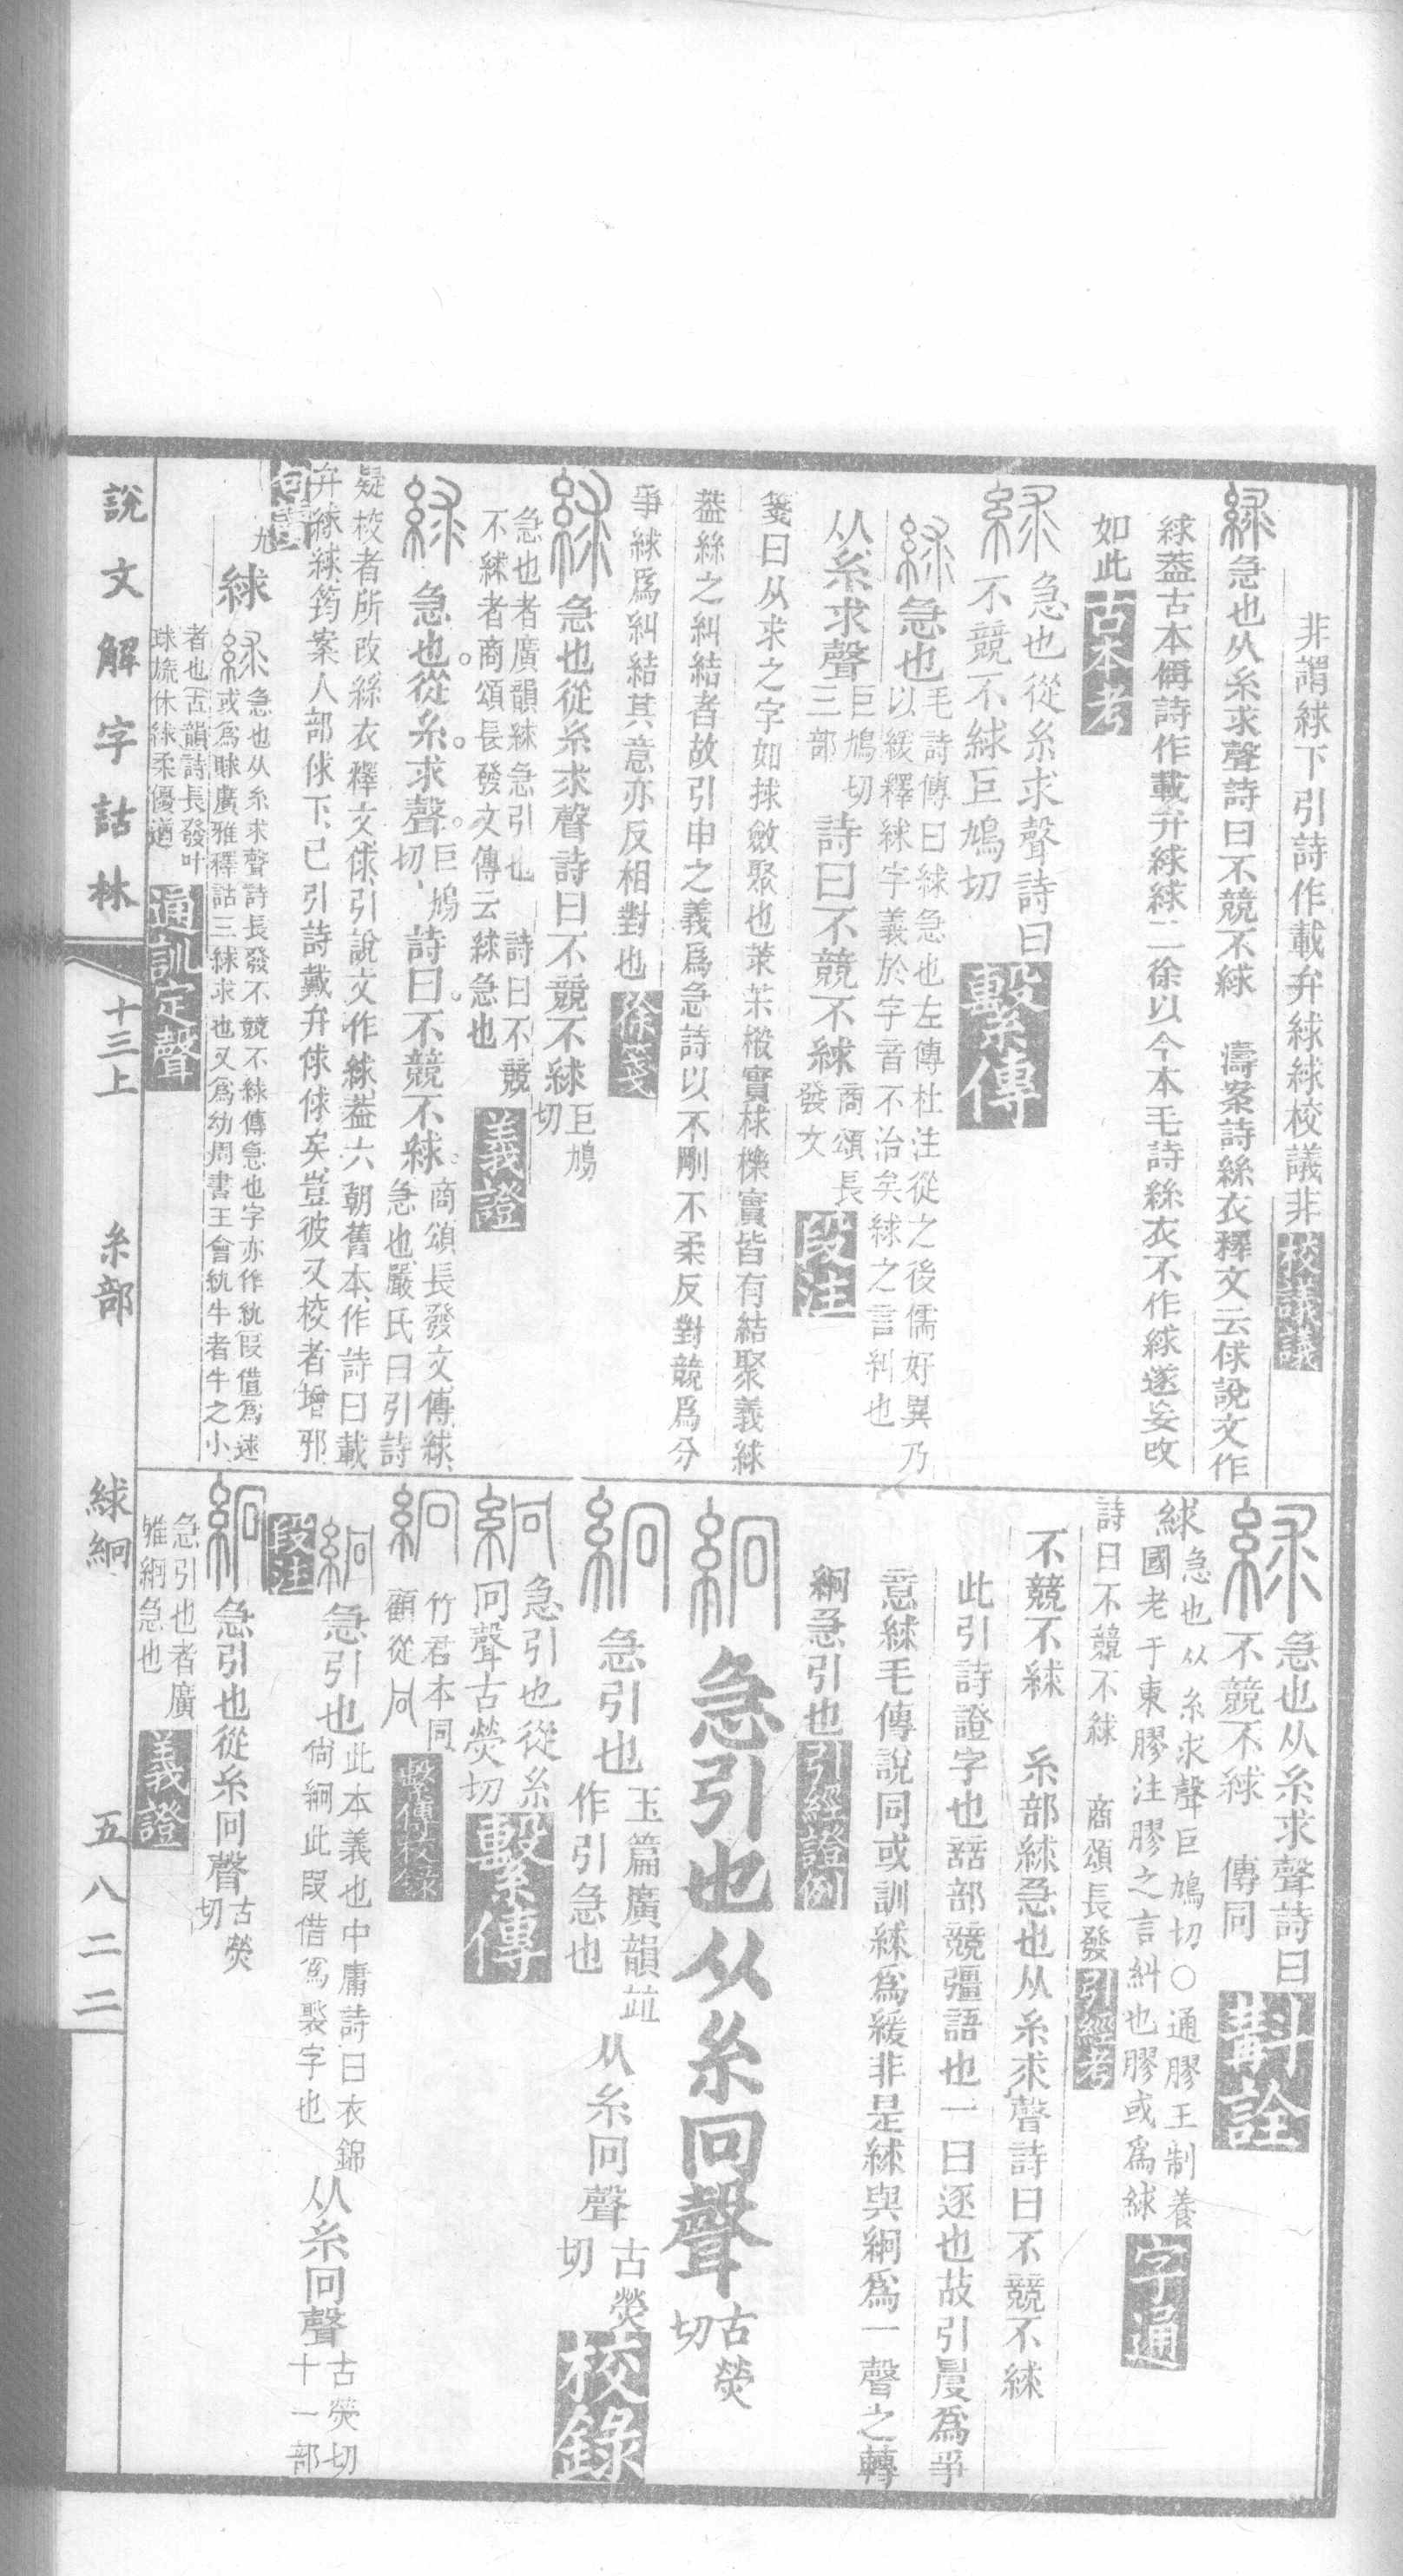 非謂絿下引詩作載弁絿絿校議非校議議
絿急也从糸求聲詩曰不競不絿　濤案詩絲衣釋文云俅說文作
絿葢古本偁詩作載弁絿絿二徐以今本毛詩絲衣不作絿遂妄改
如此古本考
絿急也從糸求聲詩曰
不競不絿巨鳩切繫傳
絿急也毛詩傳曰絿急也左傳杜注從之後儒好異乃
以緩釋絿字義於字音不治矣絿之言糾也
从糸求聲巨鳩切
三部詩曰不競不絿商頌長
發文段注
箋曰从求之字如捄斂聚也莍茮樧實梂櫟實皆有結聚義絿
葢絲之糾結者故引申之義爲急詩以不剛不柔反對競爲分
爭絿爲糾結其意亦反相對也徐箋
絿急也從糸求聲詩曰不競不絿巨鳩
切
急也者廣韻絿急引也　詩曰不競
不絿者商頌長發文傳云絿急也義證
絿急也從糸求聲巨鳩
切詩曰不競不絿商頌長發文傳絿
急也嚴氏曰引詩
疑校者所改絲衣釋文俅引說文作絿葢六朝舊本作詩曰載
弁絿絿筠案人部俅下已引詩戴弁俅俅矣豈彼又校者增邪
句讀
絿絿急也从糸求聲詩長發不競不絿傳急也字亦作紈叚借爲逑
或爲賕廣雅釋詁三絿求也又爲幼周書王會紈牛者牛之小
者也古韻詩長發叶
球旒休絿柔優遒通訓定聲
絿急也从糸求聲詩曰
不競不絿　傳同斠詮
絿急也从糸求聲巨鳩切〇通膠王制養
國老于東膠注膠之言糾也膠或爲絿字通
詩曰不競不絿　商頌長發引經考
不競不絿　糸部絿急也从糸求聲詩曰不競不絿
此引詩證字也誩部競彊語也一曰逐也故引㬅爲爭
意絿毛傳說同或訓絿爲緩非是絿與絅爲一聲之轉
絅急引也引經證例
絅急引也从糸冋聲古熒
切
絅急引也玉篇廣韻竝
作引急也从糸冋聲古熒
切校錄
絅急引也從糸
冋聲古熒切繫傳
絅竹君本同
顧從冋繫傳校錄
絅急引也此本義也中庸詩曰衣錦
尙絅此叚借爲褧字也从糸冋聲古熒切
十一部
段注
絅急引也從糸冋聲古熒
切
急引也者廣
雅絅急也義證
說文解字詁林　十三上　糸部　絿絅　五八二二